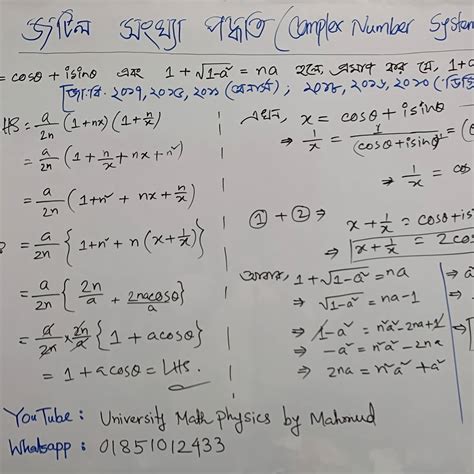 জটিল সংখ্যা পদ্ধতি (Complex Number System
= cosθ + isinθ এবং 1 + √1-a² = na হলে প্রমাণ কর যে, 1+a
[জা:বি: ২০১৭, ২০১৫, ২০১১ (অনার্স); ২০১৮, ২০১৬, ২০১০ (ডিগ্রি
HS = a/2n (1+nx)(1+n/x)
= a/2n (1 + n/x + nx + n²)
= a/2n (1+n² + nx + n/x)
= a/2n {1+n² + n(x + 1/x)}
= a/2n {2n/a + 2nacosθ/a}
= a/2n × 2n/a {1 + acosθ}
= 1 + acosθ = LHS.
এখন, x = cosθ + isinθ
⇒ 1/x = 1/(cosθ+isinθ) = (
⇒ 1/x = cos
① + ② ⇒ x + 1/x = cosθ+is
⇒ x + 1/x = 2cos
আবার, 1 + √1-a² = na
⇒ √1-a² = na-1
⇒ 1-a² = n²a²-2na+1
⇒ -a² = n²a²-2na
⇒ 2na = n²a² + a²
⇒ a
⇒
⇒
YouTube : University Math Physics by Mahmud
Whatsapp : 01851012433